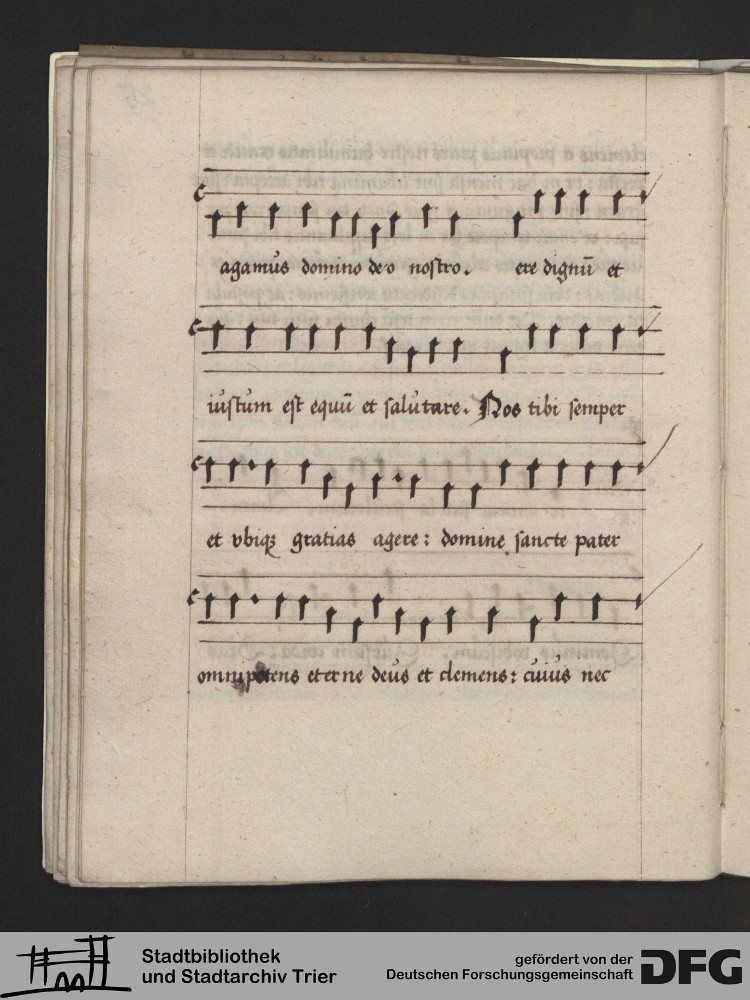 agamus domino deo nostro. ere dignū et
iustum est equū et salutare. Nos tibi semper
et vbiqꝫ gratias agere: domine sancte pater
omnipotens eterne deus et clemens: cuius nec
Stadtbibliothek
und Stadtarchiv Trier
gefördert von der
Deutschen Forschungsgemeinschaft
DFG